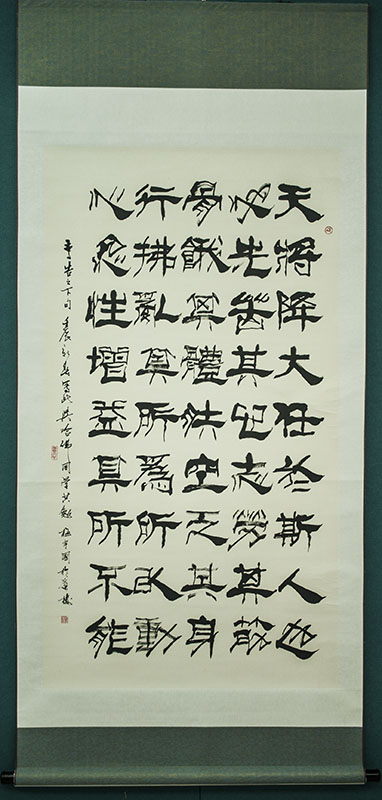 天將降大任於斯人也
必先苦其心志勞其筋
骨餓其體肤空乏其身
行拂亂其所為所以動
心忍性增益其所不能
告之下句壬辰初春